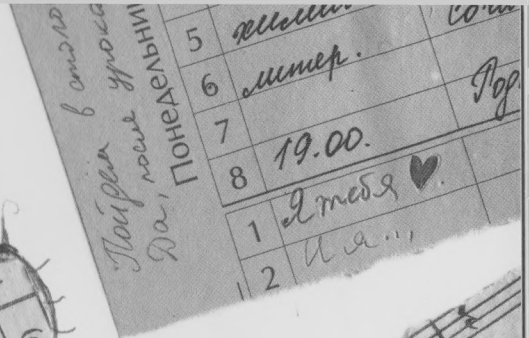 Пойдём в столо
Да, после урока
Понедельни
5 химия
6 литер.
7
8 19.00.
1 Я тебя ♥.
2 И я...,